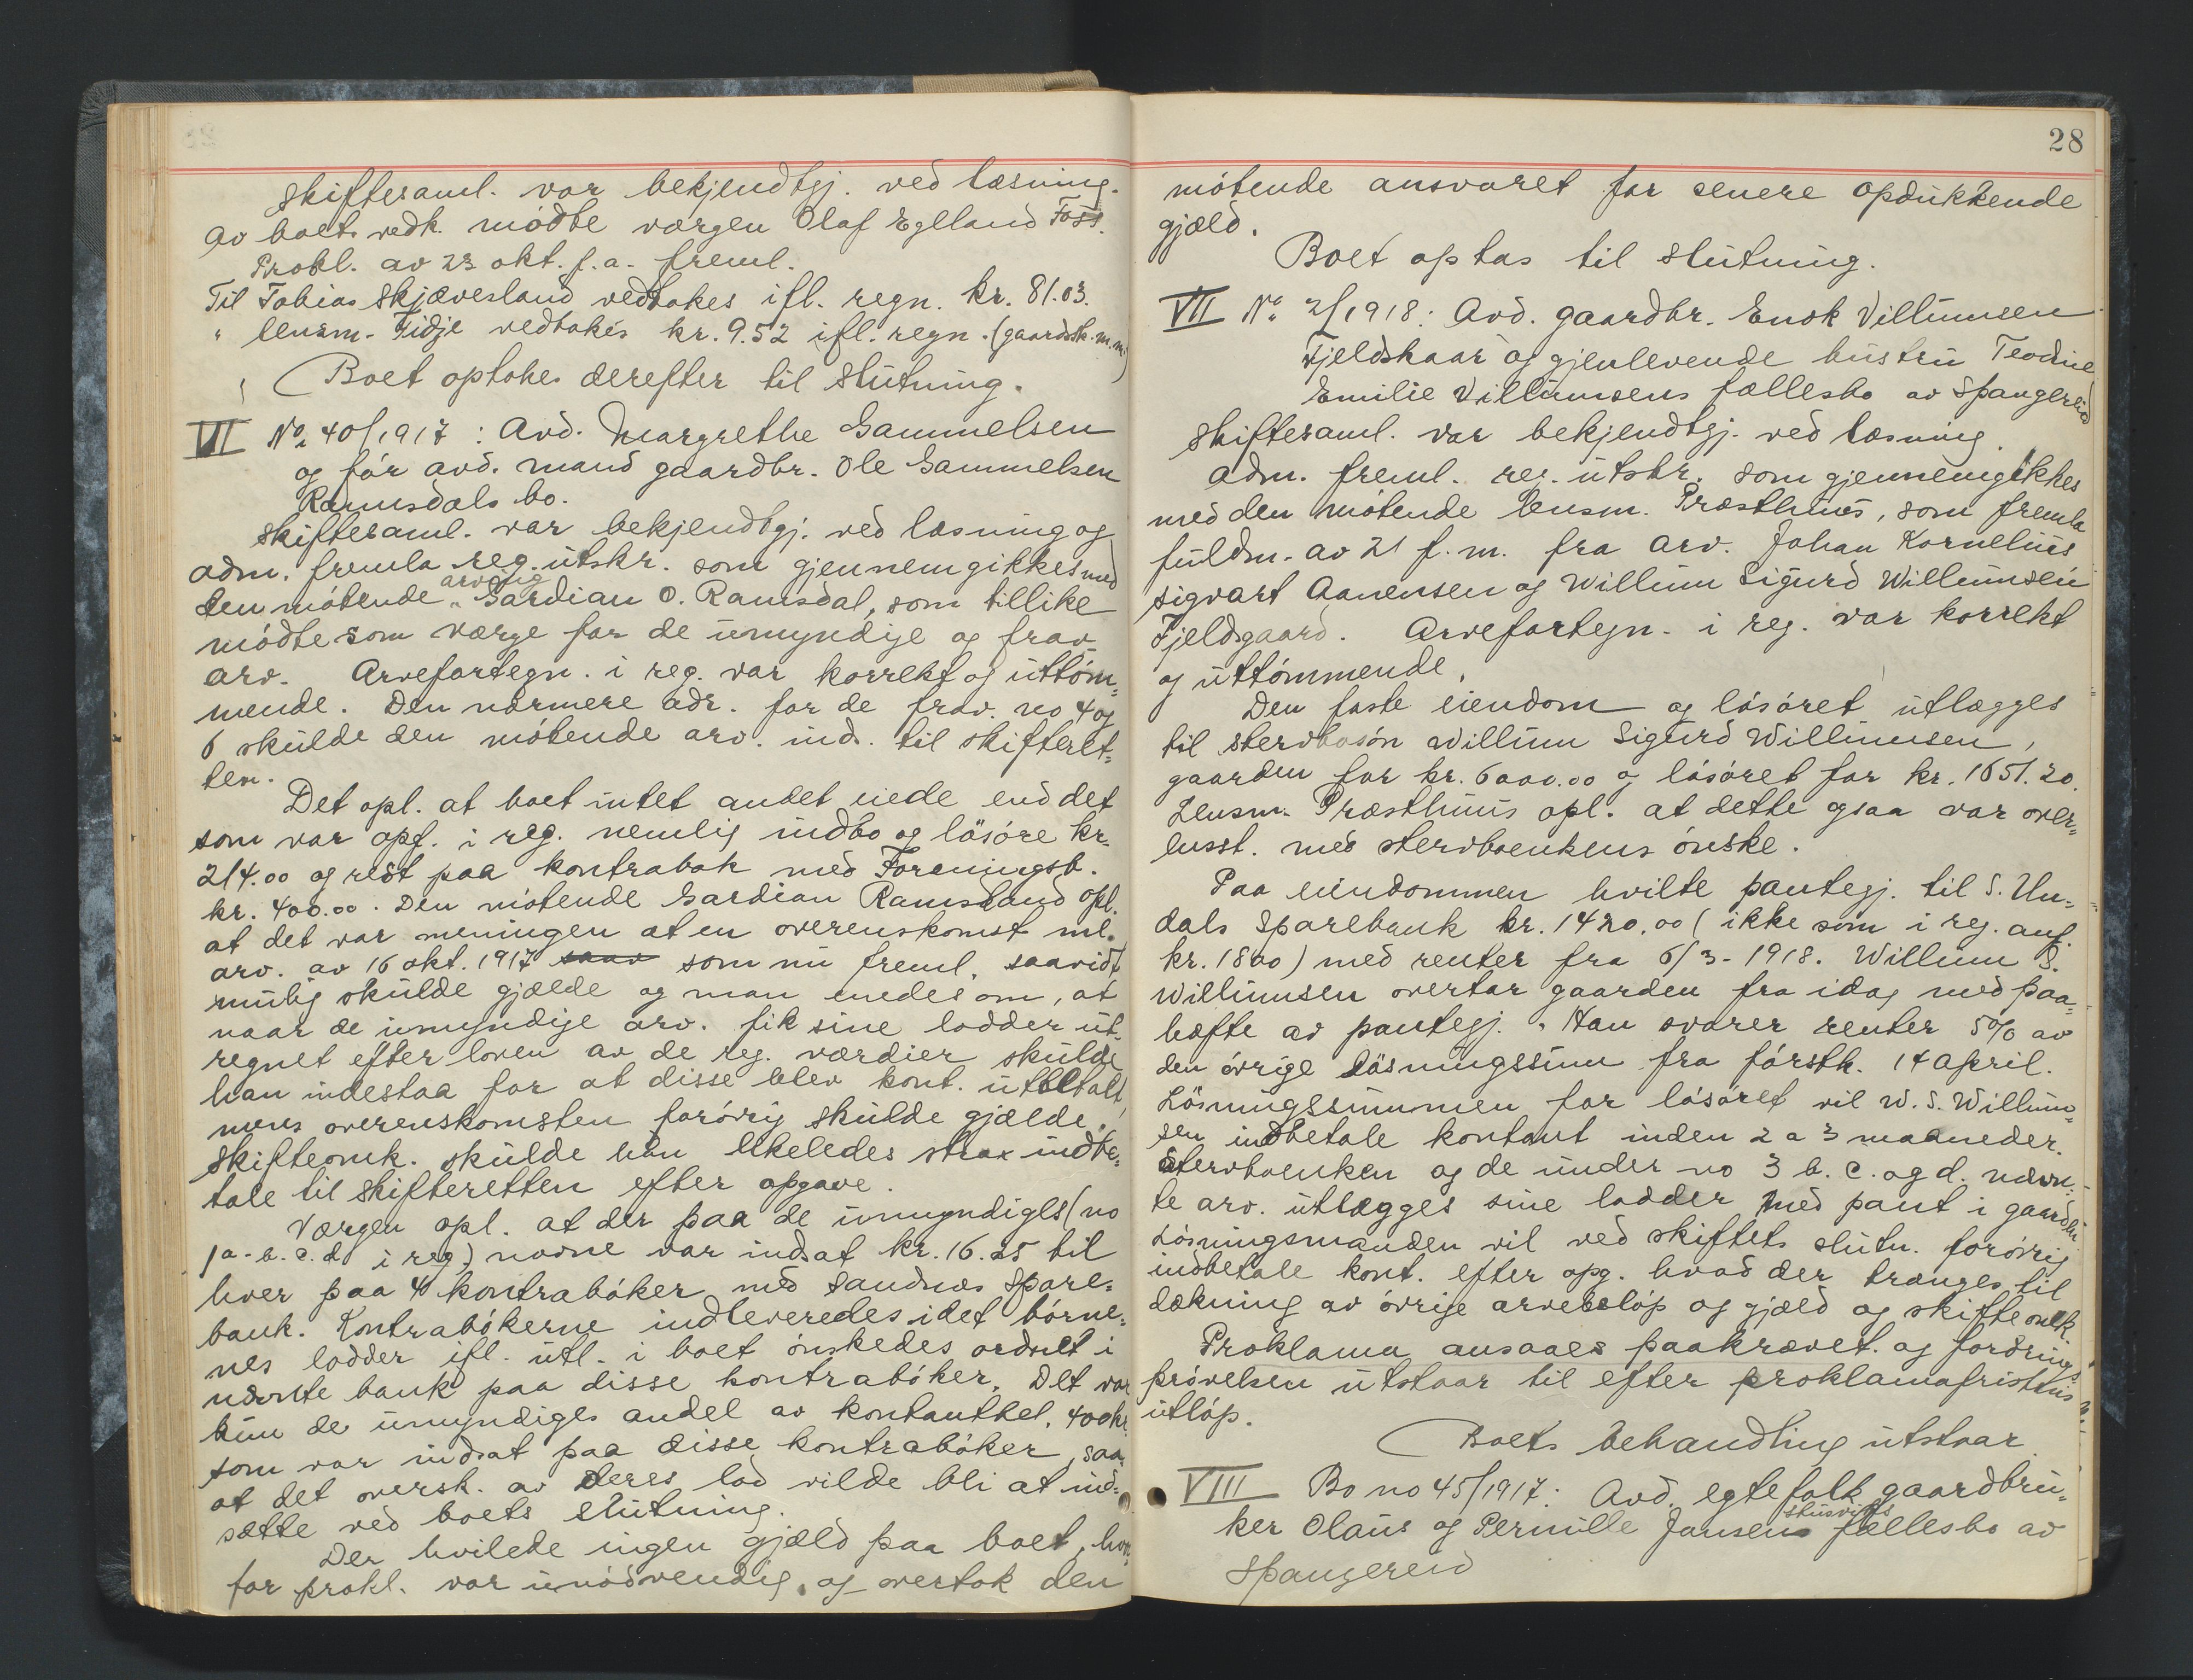 skiftesaml. var bekjendtgj. ved læsning.
Av boets vedk. mødte værgen Olaf Egeland Foss.
Prokl. av 23 okt. f.a. freml.
Til Tobias Skjævesland vedtakes ifl. regn. kr. 81.03.
" lensm. Tidje vedtakes kr. 9.52 ifl. regn. (gaardsk. m.m.)
Boet optokes derefter til slutning.
VI No. 40/1917: Avd. Margrethe Gammelsen
og før avd. mand gaardbr. Ole Gammelsen
Ramsdals bo.
Skiftesaml. var bekjendtgj. ved læsning og
adm. fremla reg. utskr. som gjennemgikkes med
den møtende arving Gardian O. Ramsdal, som tillike
mødte som værge for de umyndige og frav.
arv. Arvefortegn. i reg. var korrekt og uttøm=
mende. Den nærmere adr. for de frav. no 4 og
6 skulde den møtende arv. ind. til skifteret=
ten.
Det opl. at boet intet andet eiede end det
som var opf. i reg. nemlig indbo og løsøre kr.
214.00 og rest paa kontrabok med Foreningsb.
kr. 400.00. Den møtende Gardian Ramsland opl.
at det var meningen at en overenskomst ml.
arv. av 16 okt. 1917 saav som nu freml. saavidt
mulig skulde gjælde og man enedes om, at
naar de umyndige arv. fik sine lodder ut=
regnet efter loven av de reg. værdier skulde
han indestaa for at disse blev kont. utbetalt,
mens overenskomsten forøvrig skulde gjælde.
Skifteomk. skulde han likeledes strax indbe=
tale til skifteretten efter opgave.
Værgen opl. at der paa de umyndiges (no
1 a. b. c. d i reg.) navne var indsat kr. 16.25 til
hver paa 4 kontrabøker med Sandnes Spare=
bank. Kontrabøkerne indleveredes idet børne=
nes lodder ifl. utl. i boet ønskedes ordnet i
nævnte bank paa disse kontrabøker. Det var
kun de umyndiges andel av kontanthel. 400 kr
som var indsat paa disse kontrabøker, saa
at det oversk. av deres lod vilde bli at ind=
sætte ved boets slutning.
Der hvilede ingen gjæld paa boet, hvor=
for prokl. var unødvendig, og overtok den
28
møtende ansvaret for senere opdukkende
gjæld.
Boet optas til slutning.
VII No 2/1918: Avd. gaardbr. Enok Villumsen
Fjeldskaar og gjenlevende hustru Teodine
Emilie Villumsens fællesbo av Spangereid
Skiftesaml. var bekjendtgj. ved læsning.
Adm. freml. reg. utskr. som gjennemgikkes
med den møtende lensm. Præsthuus, som fremla
fuldm. av 21 f.m. fra arv. Johan Kornelius
Sigvart Aanensen og Willum Sigurd Willumsen
Fjeldsgaard. Arvefortegn. i reg. var korrekt
og uttømmende.
Den faste eiendom og løsøret utlægges
til stervbosøn Willum Sigurd Willumsen,
gaarden for kr. 6000.00 og løsøret for kr. 1651.20.
Lensm. Præsthuus opl. at dette ogsaa var over=
ensst. med stervboenkens ønske.
Paa eiendommen hvilte pantegj. til S. Un=
dals Sparebank kr. 1420.00 (ikke som i reg. anf.
kr. 1800) med renter fra 6/3-1918. Willum S.
Willumsen overtar gaarden fra idag med paa=
hæfte av pantegj. Han svarer renter 5% av
den øvrige løsningssum fra førstk. 14 april.
Løsningssummen for løsøret vil W. S. Willum=
sen indbetale kontant inden 2 a 3 maaneder.
Stervboenken og de under no 3 b. c. og d. nævn=
te arv. utlægges sine lodder med pant i gaarden.
Løsningsmanden vil ved skiftets slutn. forøvrig
indbetale kont. efter opg. hvad der trænges til
dækning av øvrige arvebeløp og gjæld og skifteomk.
Proklama ansaaes paakrævet. og fordrings=
prøvelsen utstaar til efter proklamafristens
utløp.
Boets behandling utstaar
VIII Bo no 45/1917: Avd. egtefolk gaardbru=
ker Olaus og Pernille Jansens fællesbo av
Spangereid